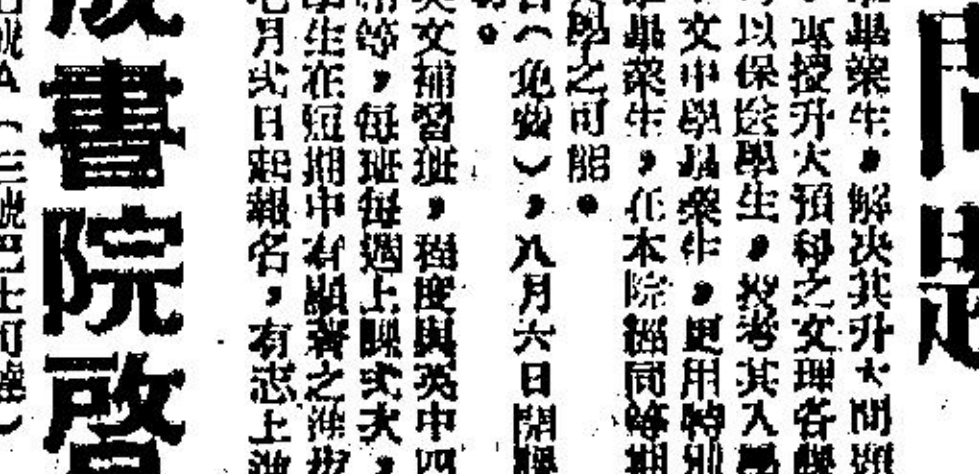 問題
業畢業生，解決其升大問題
專授升大預科之文理各
以保送學生，投考其入學
文中學畢業生，更用特別
畢業生，在本院經同等期
學之可能。
（免費），八月六日開
英文補習班，程度與英中四
等，每班每週上課式次，
學生在短期中有顯著之進步
七月式日起報名，有志上
成書院啓
（三號巴士可達）